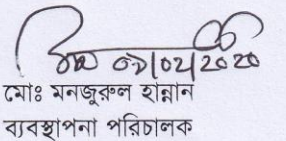 ০৯/০২/২০২০
মোঃ মনজুরুল হান্নান
ব্যবস্থাপনা পরিচালক